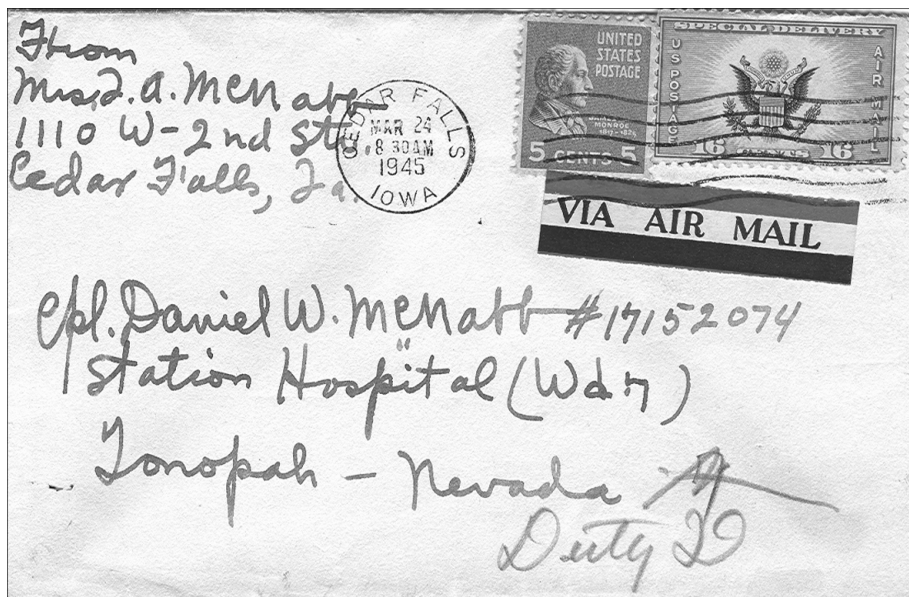 From
Mrs. J. A. McNabb
1110 W-2nd St.
Cedar Falls, Ia.
CEDAR FALLS
MAR 24
8 30 AM
1945
IOWA
UNITED
STATES
POSTAGE
JAMES
MONROE
1817-1825
5 CENTS 5
SPECIAL DELIVERY
US POSTAGE
AIR MAIL
16 CENTS 16
VIA AIR MAIL
Cpl. Daniel W. McNabb #17152074
Station Hospital (Wd 7)
Tonopah - Nevada
Duty